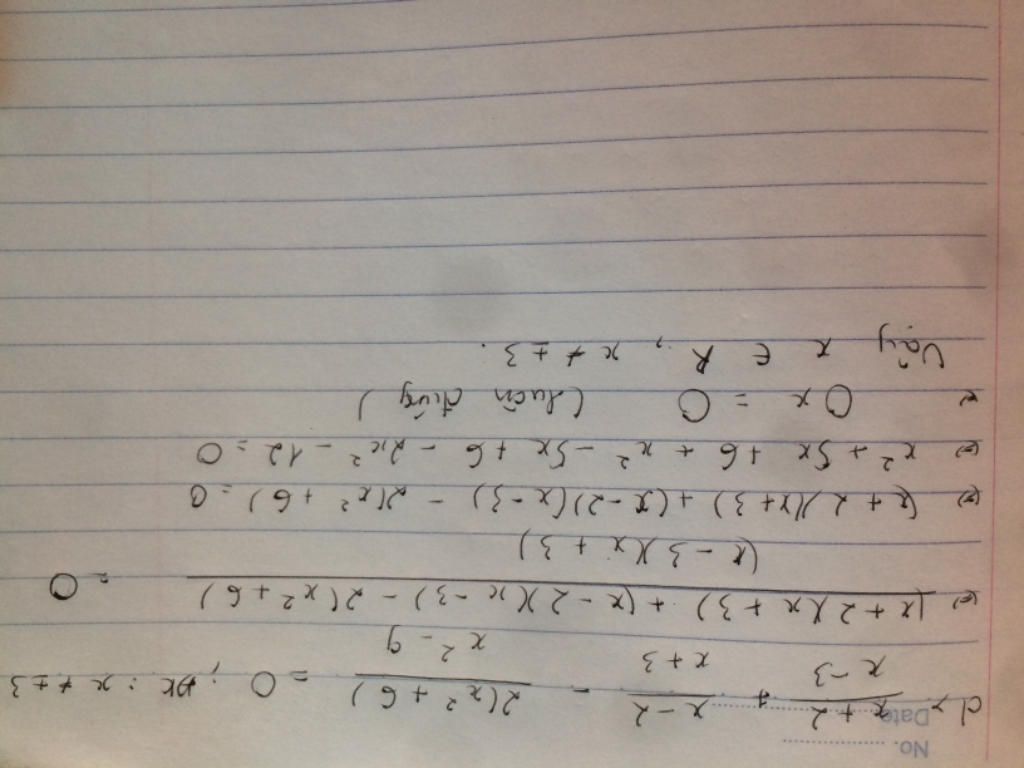 No. ........................
Date ........................
d> \frac{x+2}{x-3} + \frac{x-2}{x+3} - \frac{2(x²+6)}{x²-9} = 0 ; đk: x ≠ ±3
⇔ \frac{(x+2)(x+3) + (x-2)(x-3) - 2(x²+6)}{(x-3)(x+3)} = 0
⇔ (x+2)(x+3) + (x-2)(x-3) - 2(x²+6) = 0
⇔ x² + 5x + 6 + x² - 5x + 6 - 2x² - 12 = 0
⇔ 0x = 0 (luôn đúng)
Vậy x ∈ R, x ≠ ±3.